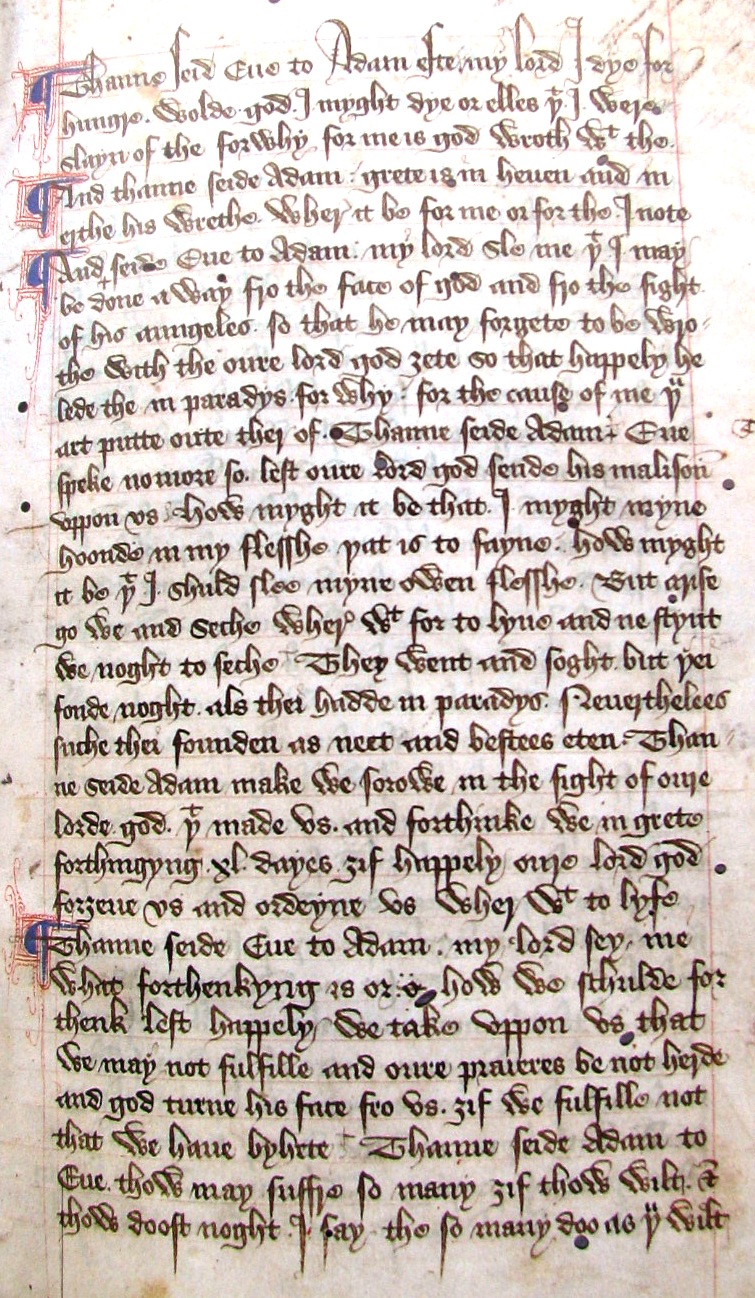 Thanne seid Eue to Adam este my lord I dye for
hungre. wolde god I myght dye or elles þͭ I were
slayn of the forwhy for me is god wroth wͭ the.
And thanne seide Adam: grete is in heuen and in
erthe his wrethe wher it be for me or for the I note
And seide Eue to Adam: my lord sle me þͭ I may
be done a way fro the face of god and fro the sight
of his aungeles. so that he may forgete to be wro-
the with the oure lord god ȝete so that happely he
lede the in paradys. for why: for the cause of me þͧ
art putte oute ther of. Thanne seide Adam. Eue
speke no more so. lest oure lord god sende his malison
vppon vs. How myght it be that. I myght myne
hoonde in my flesshe þat is to sayne. how myght
it be þͭ I. shuld slee myne owen flesshe. But arise
go we and seche wher wͭ for to lyue and ne stynt
we noght to seche They went and soght. but þei
fonde noght. als thei hadde in paradys. Neuerthelees
suche thei founden as neet and bestees eten. Than-
ne seide Adam make we sorowe in the sight of oure
lorde. god. þͭ made vs. and forthinke we in grete
forthingyng. xl. dayes. ȝif happely oure lord god
forȝeue vs and ordeyne vs wher wͭ to lyfe
Thanne seide Eue to Adam. my lord sey me
what forthenkyng is or how we schulde for
thenk lest happely we take vppon vs that
we may not fulfille and oure praieres be not herde
and god turne his face fro vs. ȝif we fulfille not
that we haue byhete Thanne seide Adam to
Eue. thow may suffre so many ȝif thow wilt. &
thow doost noght. I say the so many doo as þͧ wilt